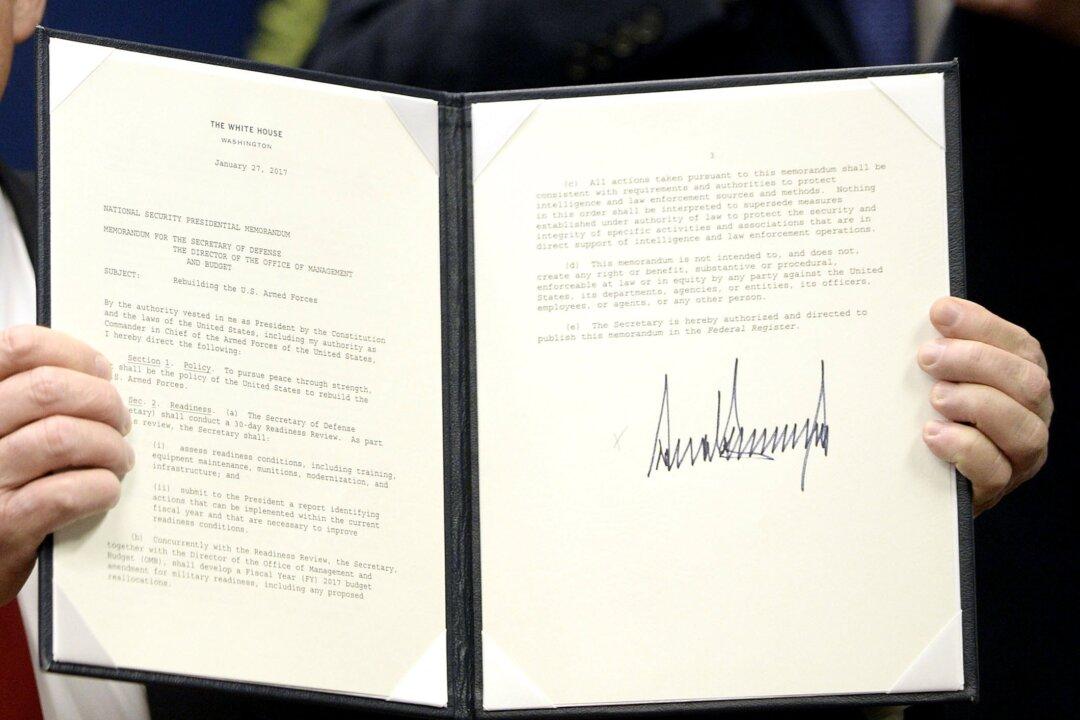 THE WHITE HOUSE
WASHINGTON
January 27, 2017
NATIONAL SECURITY PRESIDENTIAL MEMORANDUM
MEMORANDUM FOR THE SECRETARY OF DEFENSE
THE DIRECTOR OF THE OFFICE OF MANAGEMENT
AND BUDGET
SUBJECT: Rebuilding the U.S. Armed Forces
By the authority vested in me as President by the Constitution
and the laws of the United States, including my authority as
Commander in Chief of the Armed Forces of the United States,
I hereby direct the following:
Section 1. Policy. To pursue peace through strength,
shall be the policy of the United States to rebuild the
S. Armed Forces.
Sec. 2. Readiness. (a) The Secretary of Defense
etary) shall conduct a 30-day Readiness Review. As part
s review, the Secretary shall:
(i) assess readiness conditions, including training,
equipment maintenance, munitions, modernization, and
infrastructure; and
(ii) submit to the President a report identifying
actions that can be implemented within the current
fiscal year and that are necessary to improve
readiness conditions.
(b) Concurrently with the Readiness Review, the Secretary,
together with the Director of the Office of Management and
Budget (OMB), shall develop a Fiscal Year (FY) 2017 budget
amendment for military readiness, including any proposed
reallocations.
3
(c) All actions taken pursuant to this memorandum shall be
consistent with requirements and authorities to protect
intelligence and law enforcement sources and methods. Nothing
in this order shall be interpreted to supersede measures
established under authority of law to protect the security and
integrity of specific activities and associations that are in
direct support of intelligence and law enforcement operations.
(d) This memorandum is not intended to, and does not,
create any right or benefit, substantive or procedural,
enforceable at law or in equity by any party against the United
States, its departments, agencies, or entities, its officers,
employees, or agents, or any other person.
(e) The Secretary is hereby authorized and directed to
publish this memorandum in the Federal Register.